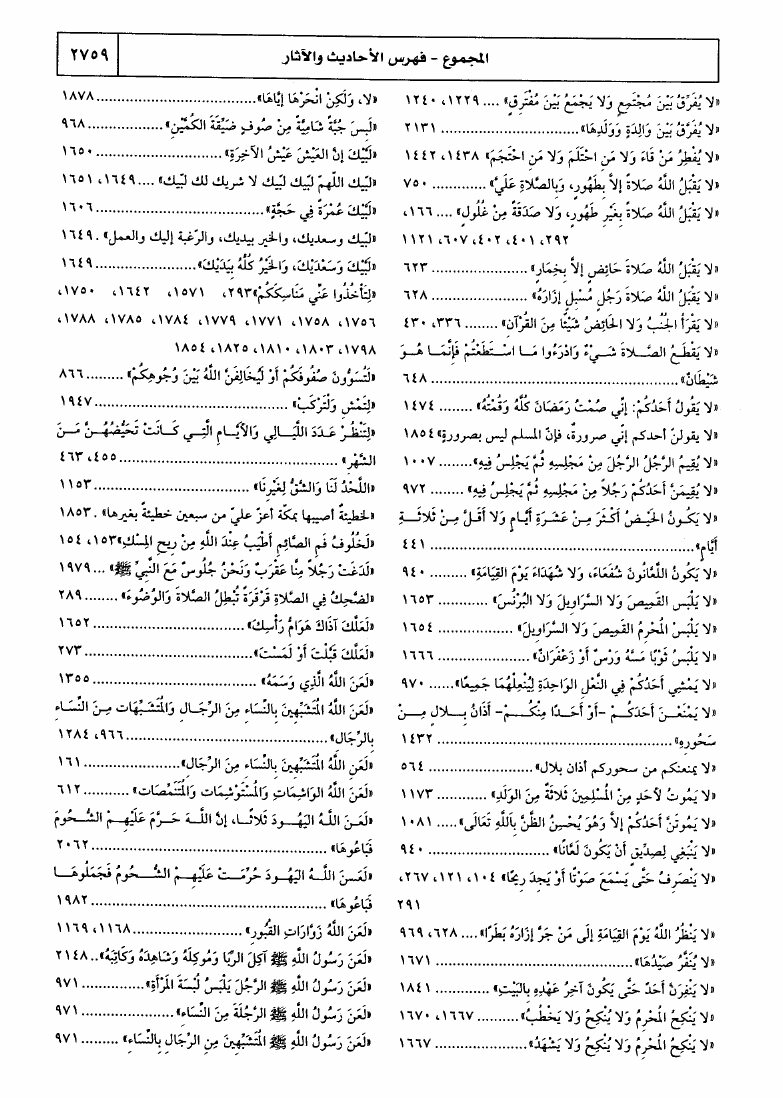 المجموع - فهرس الأحاديث والآثار
٢٧٥٩
«لا يُفَرِّقُ بَيْنَ مُجْتَمِعٍ وَلا يَجْمَعُ بَيْنَ مُفْتَرِقٍ» .... ١٢٢٩، ١٢٤٠
«لا يُفَرَّقُ بَيْنَ وَالِدَةٍ وَوَلَدِهَا» .......................... ٢١٣١
«لا يُفْطِرُ مَنْ قَاءَ وَلا مَنِ احْتَلَمَ وَلا مَنِ احْتَجَمَ» ١٤٣٨، ١٤٤٢
«لا يَقْبَلُ اللَّهُ صَلاةً إلاَّ بِطَهُورٍ، وَبِالصَّلاةِ عَلَيَّ» ............. ٧٥٠
«لا يَقْبَلُ اللَّهُ صَلاةً بِغَيْرِ طَهُورٍ، وَلا صَدَقَةً مِنْ غُلُولٍ» .... ١٦٦،
٢٩٢، ٤٠١، ٤٠٢، ٦٠٧، ١١٢١
«لا يَقْبَلُ اللَّهُ صَلاةَ حَائِضٍ إلاَّ بِخِمَارٍ» .................. ٦٢٣
«لا يَقْبَلُ اللَّهُ صَلاةَ رَجُلٍ مُسْبِلٍ إزَارَهُ» ................. ٦٢٨
«لا يَقْرَأُ الجُنُبُ وَلا الحَائِضُ شَيْئًا مِنَ القُرْآنِ» ........ ٣٣٦، ٤٣٠
«لا يَقْطَعُ الصَّلاةَ شَيْءٌ وَادْرَءُوا مَا اسْتَطَعْتُمْ فَإِنَّمَا هُوَ
شَيْطَانٌ» .................................................. ٦٤٨
«لا يَقُولُ أَحَدُكُمْ: إنِّي صُمْتُ رَمَضَانَ كُلَّهُ وَقُمْتُهُ» ........ ١٤٧٤
«لا يقولنّ أحدكم إنّي صرورة، فإنّ المسلم ليس بصرورة» ١٨٥٤
«لا يُقِيمُ الرَّجُلُ الرَّجُلَ مِنْ مَجْلِسِهِ ثُمَّ يَجْلِسُ فِيهِ» ........ ١٠٠٧
«لا يُقِيمَنَّ أَحَدُكُمْ رَجُلاً مِنْ مَجْلِسِهِ ثُمَّ يَجْلِسُ فِيهِ» .......... ٩٧٢
«لا يَكُونُ الحَيْضُ أَكْثَرَ مِنْ عَشَرَةِ أَيَّامٍ وَلا أَقَلَّ مِنْ ثَلاثَةِ
أَيَّامٍ» ..................................................... ٤٤١
«لا يَكُونُ اللَّعَّانُونَ شُفَعَاءَ، وَلا شُهَدَاءَ يَوْمَ القِيَامَةِ» .......... ٩٤٠
«لا يَلْبَس القَمِيصَ وَلا السَّرَاوِيلَ وَلا البُرْنُسَ» ............ ١٦٥٣
«لا يَلْبَسْ المُحْرِمُ القَمِيصَ وَلا السَّرَاوِيلَ» ................ ١٦٥٤
«لا يَلْبَسُ ثَوْبًا مَسَّهُ وَرْسٌ أَوْ زَعْفَرَانٌ» ................... ١٦٦٦
«لا يَمْشِي أَحَدُكُمْ فِي النَّعْلِ الوَاحِدَةِ لِيُنْعِلْهُمَا جَمِيعًا» ...... ٩٧٠
«لا يَمْنَعَنَّ أَحَدَكُمْ -أَوْ أَحَدًا مِنْكُمْ- أَذَانُ بِلالٍ مِنْ
سَحُورِهِ» ................................................ ١٤٣٢
«لا يمنعنكم من سحوركم أذان بلال» ...................... ٥٦٤
«لا يَمُوتُ لأَحَدٍ مِنْ المُسْلِمِينَ ثَلاثَةٌ مِنَ الوَلَدِ» ............ ١١٧٣
«لا يَمُوتَنَّ أَحَدُكُمْ إلاَّ وَهُوَ يُحْسِنُ الظَّنَّ بِاَللَّهِ تَعَالَى» ..... ١٠٨١
«لا يَنْبَغِي لِصِدِّيقٍ أَنْ يَكُونَ لَعَّانًا» ......................... ٩٤٠
«لا يَنْصَرِفُ حَتَّى يَسْمَعَ صَوْتًا أَوْ يَجِدَ رِيحًا» ١٠٤، ١٢١، ٢٦٧،
٢٩١
«لا يَنْظُرُ اللَّهُ يَوْمَ القِيَامَةِ إلَى مَنْ جَرَّ إزَارَهُ بَطَرًا» .... ٦٢٨، ٩٦٩
«لا يُنَفَّرُ صَيْدُهَا» ....................................... ١٦٧١
«لا يَنْفِرَنَّ أَحَدٌ حَتَّى يَكُونَ آخِرُ عَهْدِهِ بِالبَيْتِ» ............ ١٨٤١
«لا يَنْكِحُ المُحْرِمُ وَلا يُنْكِحُ وَلا يَخْطُبُ» ......... ١٦٦٧، ١٦٧٠
«لا يَنْكِحُ المُحْرِمُ وَلا يُنْكِحُ وَلا يَشْهَدُ» .................... ١٦٦٧
«لا، وَلَكِنْ انْحَرْهَا إيَّاهَا» ................................ ١٨٧٨
«لَبِسَ جُبَّةً شَامِيَّةً مِنْ صُوفٍ ضَيِّقَةَ الكُمَّيْنِ» ............... ٩٦٨
«لَبَّيْكَ إنَّ العَيْشَ عَيْشُ الآخِرَةِ» ......................... ١٦٥٠
«لبّيك اللهمّ لبّيك لبّيك لا شريك لك لبّيك» .... ١٦٤٩، ١٦٥١
«لَبَّيْكَ عُمْرَةً فِي حَجَّةٍ» .................................. ١٦٠٦
«لبّيك وسعديك، والخير بيديك، والرّغبة إليك والعمل» . ١٦٤٩
«لَبَّيْكَ وَسَعْدَيْكَ، وَالخَيْرُ كُلُّهُ بِيَدَيْكَ» .................... ١٦٤٩
«لِتَأْخُذُوا عَنِّي مَنَاسِكَكُمْ» ٢٩٣، ١٥٧١، ١٦٤٢، ١٧٥٠،
١٧٥٦، ١٧٥٨، ١٧٧١، ١٧٧٩، ١٧٨٤، ١٧٨٥، ١٧٨٨،
١٧٩٨، ١٨٠٣، ١٨١٠، ١٨٢٥، ١٨٥٤
«لَتُسَوُّونَ صُفُوفَكُمْ أَوْ لَيُخَالِفَنَّ اللَّهُ بَيْنَ وُجُوهِكُمْ» ......... ٨٦٦
«لِتَمْشِ وَلْتَرْكَبْ» ....................................... ١٩٤٧
«لِتَنْظُرْ عَدَدَ اللَّيَالِي وَالأَيَّامِ الَّتِي كَانَتْ تَحِيضُهُنَّ مِنَ
الشَّهْرِ» ........................................... ٤٥٥، ٤٦٣
«اللَّحْدُ لَنَا وَالشَّقُّ لِغَيْرِنَا» ............................... ١١٥٣
«لخطيئةٌ أصيبها بمكّة أعزّ عليّ من سبعين خطيئةً بغيرها» . ١٨٥٣
«لَخُلُوفُ فَمِ الصَّائِمِ أَطْيَبُ عِنْدَ اللَّهِ مِنْ رِيحِ المِسْكِ» ١٥٣، ١٥٤
«لَدَغَتْ رَجُلاً مِنَّا عَقْرَبٌ وَنَحْنُ جُلُوسٌ مَعَ النَّبِيِّ ﷺ» ... ١٩٧٩
«لضحِكُ فِي الصَّلاةِ قَرْقَرَةً تُبْطِلُ الصَّلاةَ وَالوُضُوءَ» ........ ٢٨٩
«لَعَلَّكَ آذَاكَ هَوَامُّ رَأْسِكَ» ................................ ١٦٥٢
«لَعَلَّكَ قَبَّلْتَ أَوْ لَمَسْتَ» ................................... ٢٧٣
«لَعَنَ اللَّهُ الَّذِي وَسَمَهُ» .................................. ١٣٥٥
«لَعَنَ اللَّهُ المُتَشَبِّهِينَ بِالنِّسَاءِ مِنَ الرِّجَالِ وَالمُتَشَبِّهَاتِ مِنَ النِّسَاءِ
بِالرِّجَالِ» ......................................... ٩٦٦، ١٢٨٤
«لَعَنَ اللَّهُ المُتَشَبِّهِينَ بِالنِّسَاءِ مِنَ الرِّجَالِ» .................... ١٦١
«لَعَنَ اللَّهُ الوَاشِمَاتِ وَالمُسْتَوْشِمَاتِ وَالمُتَنَمِّصَاتِ» ........... ٦١٢
«لَعَنَ اللَّهُ اليَهُودَ ثَلاثًا، إنَّ اللَّهَ حَرَّمَ عَلَيْهِمْ الشُّحُومَ
فَبَاعُوهَا» ................................................ ٢٠٦٢
«لَعَنَ اللَّهُ اليَهُودَ حُرِّمَتْ عَلَيْهِمْ الشُّحُومُ فَجَمَلُوهَا
فَبَاعُوهَا» ................................................ ١٩٨٢
«لَعَنَ اللَّهُ زَوَّارَاتِ القُبُورِ» ....................... ١١٦٨، ١١٦٩
«لَعَنَ رَسُولُ اللَّهِ ﷺ آكِلَ الرِّبَا وَمُوكِلَهُ وَشَاهِدَهُ وَكَاتِبَهُ» .. ٢١٤٨
«لَعَنَ رَسُولُ اللَّهِ ﷺ الرَّجُلَ يَلْبَسُ لُبْسَةَ المَرْأَةِ» ............ ٩٧١
«لَعَنَ رَسُولُ اللَّهِ ﷺ الرَّجُلَةَ مِنَ النِّسَاءِ» ................... ٩٧١
«لَعَنَ رَسُولُ اللَّهِ ﷺ المُتَشَبِّهِينَ مِنَ الرِّجَالِ بِالنِّسَاءِ» ......... ٩٧١